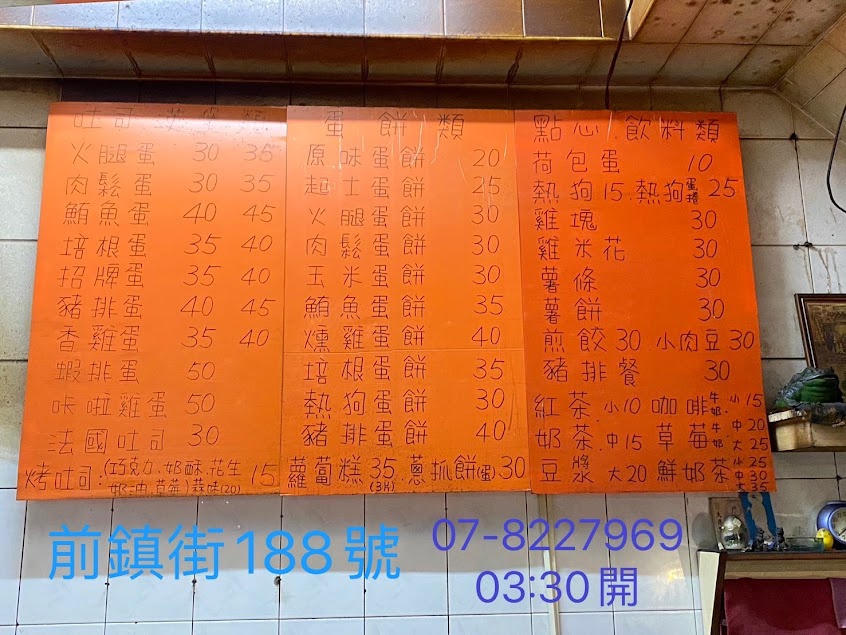 吐司 漢堡類
火腿蛋 30 35
肉鬆蛋 30 35
鮪魚蛋 40 45
培根蛋 35 40
招牌蛋 35 40
豬排蛋 40 45
香雞蛋 35 40
蝦排蛋 50
咔啦雞蛋 50
法國吐司 30
烤吐司:(巧克力.奶酥.花生 15
奶油.草莓)蒜味(20)
蛋餅類
原味蛋餅 20
起士蛋餅 25
火腿蛋餅 30
肉鬆蛋餅 30
玉米蛋餅 30
鮪魚蛋餅 35
燻雞蛋餅 40
培根蛋餅 35
熱狗蛋餅 30
豬排蛋餅 40
蘿蔔糕35.蔥抓餅(蛋)30
(3片)
點心.飲料類
荷包蛋 10
熱狗15.熱狗蛋捲25
雞塊 30
雞米花 30
薯條 30
薯餅 30
煎餃30 小肉豆30
豬排餐 30
紅茶.小10 咖啡牛奶.小15
奶茶.中15 草莓牛奶 中20 大25
豆漿 大20 鮮奶茶 小25 中30 大35
前鎮街188號
07-8227969
03:30開